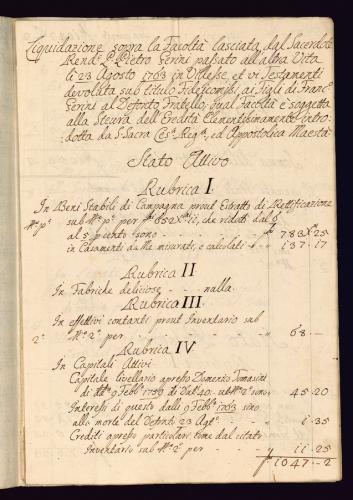 Liquidazione sopra la Facoltà lasciata dal Sacerdote
Rend.e S.r Pietro Gerini passato all'altra Vita
li 23 Agosto 1763 in Villesse, et vi Testamenti
devoluta sub titulo Fideicomissi ai Figli di Franc.o
Gerini al Defonto Fratello, qual Facoltà è soggetta
alla Steura dell'Eredità Clementissimamente intro-
dotta da S. Sacra Ces.a Reg.a, ed Appostolica Maestà
Stato Attivo
Rubrica I
In Beni Stabili di Campagna prout Estratto di Rettificazione
sub N.o p.o per
al 5 p cento sono - - - - f 783 X 25
in Casamenti da Me misurati, e calcolati - " 137 - 17
Rubrica II
In Fabriche deliciose - - - nulla
Rubrica III
In effettivi contanti prout Inventario sub
N.o 2.o per - - - - " 68 - -
Rubrica IV
In Capitali Attivi
Capitale livellario apresso Domenico Tomasini
di 9 Febb.o 1759 di Duc. 40: sub N.o 2.o sono " 45 - 20
Interessi di questo dalli 9 Febb.o 1763 sino
alla morte del Defonto 23 Ag.to - - " 1 - 35
Crediti apresso particolari come dal
Inventario sub N.o 2.o per - - - " 11 - 25
f 1047 - 2